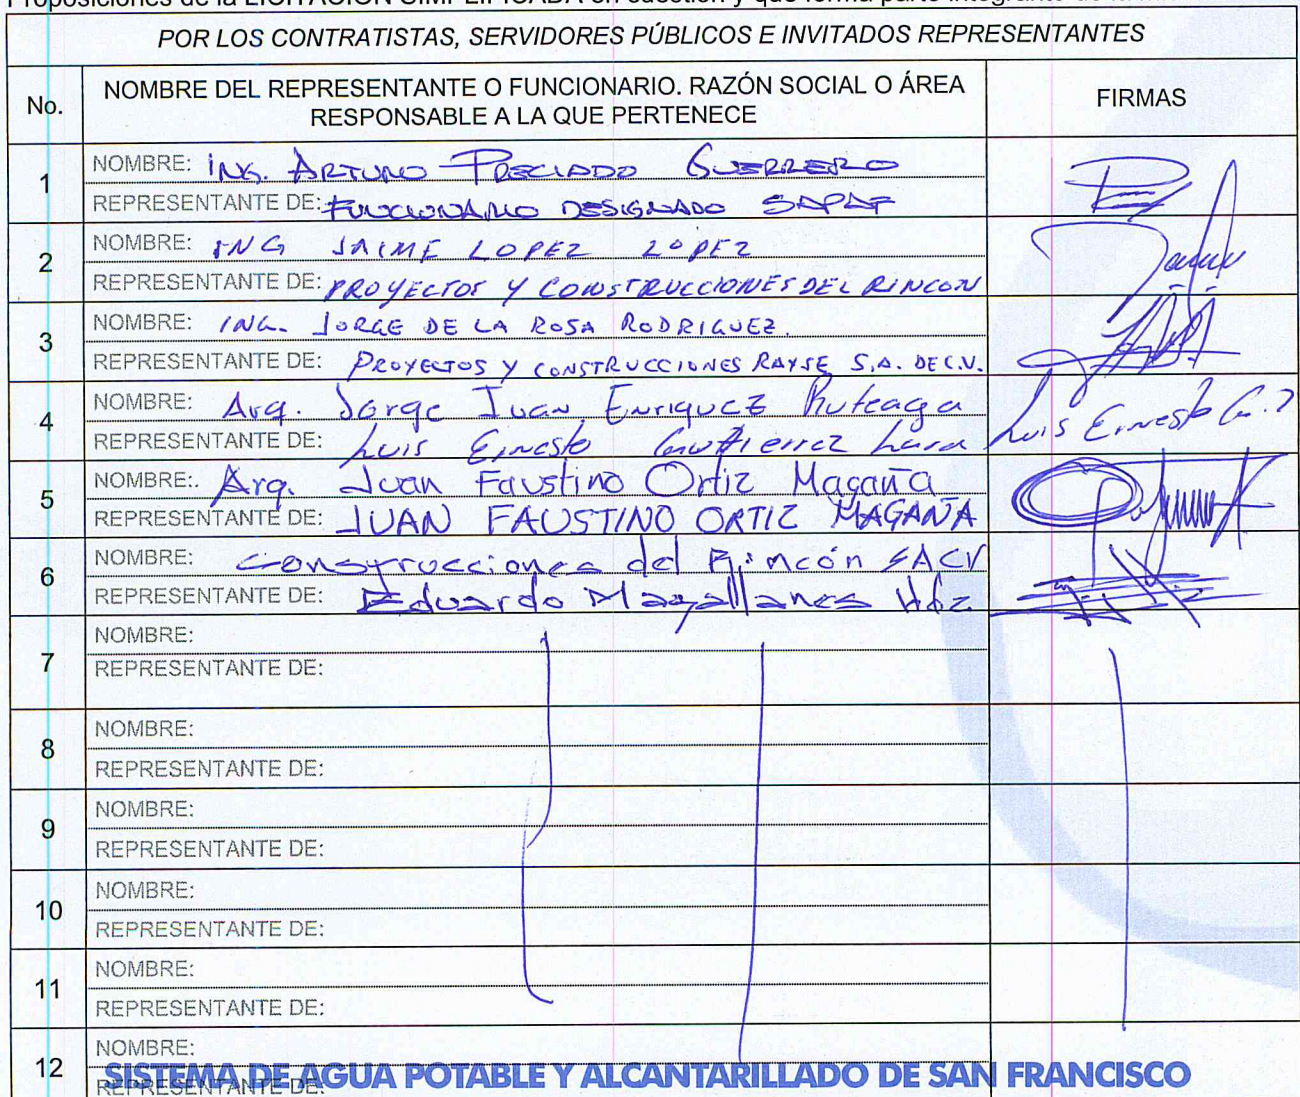 Proposiciones de la LICITACIÓN SIMPLIFICADA en cuestión y que forma parte integrante de la
POR LOS CONTRATISTAS, SERVIDORES PÚBLICOS E INVITADOS REPRESENTANTES
No. NOMBRE DEL REPRESENTANTE O FUNCIONARIO. RAZÓN SOCIAL O ÁREA RESPONSABLE A LA QUE PERTENECE FIRMAS
1 NOMBRE: ING. ARTURO PRECIADO GUERRERO
REPRESENTANTE DE: FUNCIONARIO DESIGNADO SAPAF
2 NOMBRE: ING JAIME LOPEZ LOPEZ
REPRESENTANTE DE: PROYECTOS Y CONSTRUCCIONES DEL RINCON
3 NOMBRE: ING. JORGE DE LA ROSA RODRIGUEZ.
REPRESENTANTE DE: PROYECTOS Y CONSTRUCCIONES RAYSE S.A. DE C.V.
4 NOMBRE: Arq. Jorge Juan Enriquez
REPRESENTANTE DE: Luis Ernesto Gutierrez Lara Luis Ernesto G.
5 NOMBRE:. Arq. Juan Faustino Ortiz Magaña
REPRESENTANTE DE: JUAN FAUSTINO ORTIZ MAGAÑA
6 NOMBRE: Construcciones del Rincón SACV
REPRESENTANTE DE: Eduardo Magallanes Hdz
7 NOMBRE:
REPRESENTANTE DE:
8 NOMBRE:
REPRESENTANTE DE:
9 NOMBRE:
REPRESENTANTE DE:
10 NOMBRE:
REPRESENTANTE DE:
11 NOMBRE:
REPRESENTANTE DE:
12 NOMBRE:
REPRESENTANTE DE:
SISTEMA DE AGUA POTABLE Y ALCANTARILLADO DE SAN FRANCISCO